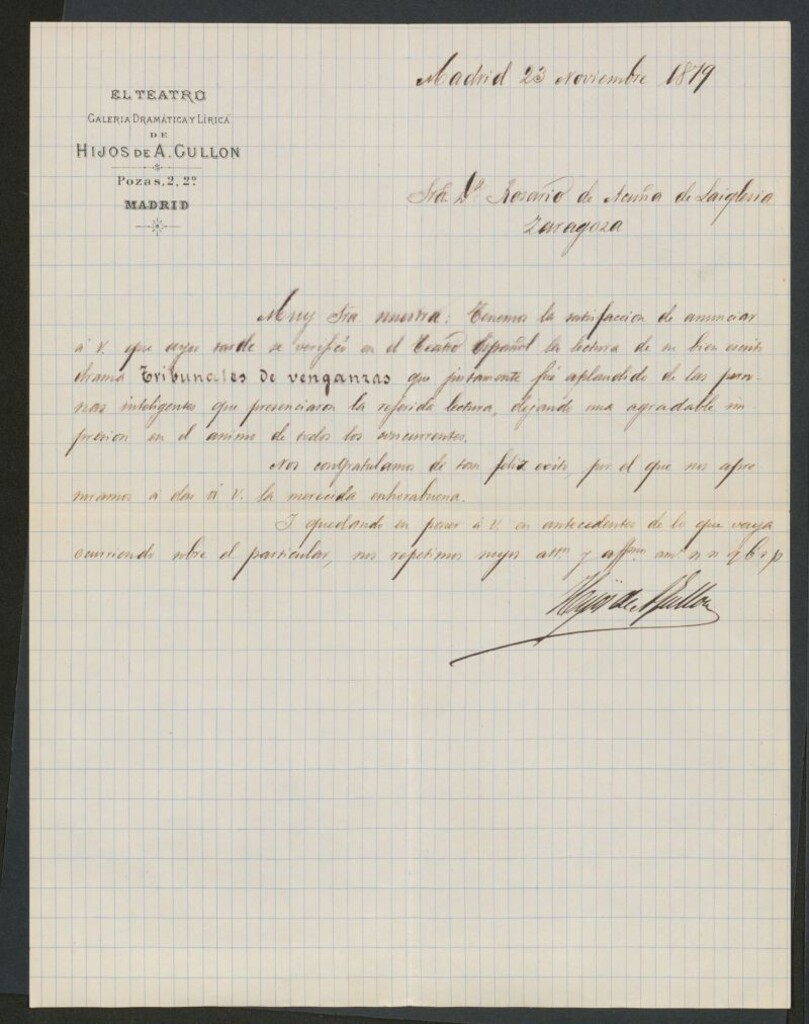 Madrid 23 Noviembre 1879
EL TEATRO
GALERIA DRAMÁTICA Y LÍRICA
DE
HIJOS DE A. GULLON
Pozas, 2, 2º
MADRID
Sra. Dª. Rosario de Acuña de Laiglesia
Zaragoza
Muy Sra. nuestra: Tenemos la satisfaccion de anunciar
á V. que ayer tarde se verificó en el Teatro Español la lectura de su bien escrito
drama Tribunales de venganzas que justamente fué aplaudido de las perso-
nas inteligentes que presenciaron la referida lectura, dejando una agradable im-
presion en el animo de todos los concurrentes.
Nos congratulamos de tan feliz exito, por el que nos apre-
suramos á dar á V. la merecida enhorabuena.
Y quedando en poner á V. en antecedentes de lo que vaya
ocurriendo sobre el particular, nos repetimos suyos attos y affmos q b s p
Hijos de A. Gullon